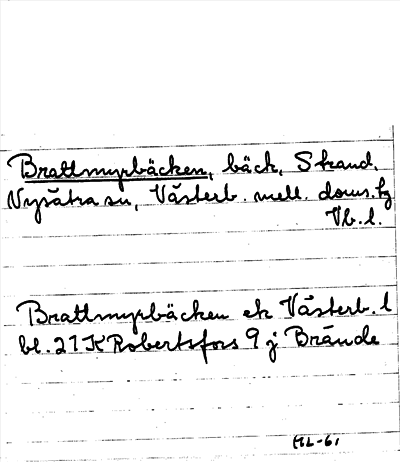 Brattmyrbäcken, bäck, Strand,
Nysätra sn, Västerb. mell. doms. tg
Vb. l.
Brattmyrbäcken ek Västerb. l
bl. 21 K Robertsfors 9 j Brände
HL-61